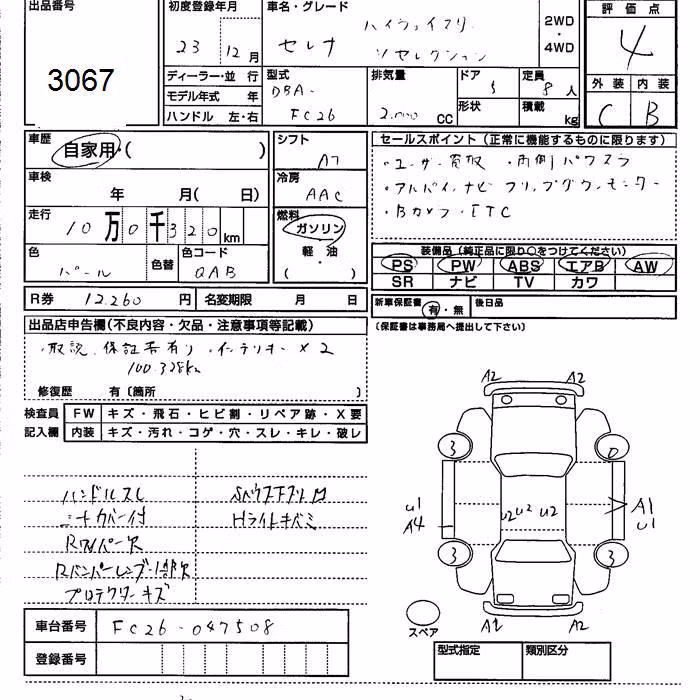 出品番号
3067
初度登録年月
23 12月
車名・グレード
ハイウェイスター
セレナ Vセレクション
2WD・4WD
評価点
4
外装 内装
C B
ディーラー・並行
モデル年式 年
ハンドル 左・右
型式
DBA-
FC26
排気量
2.000 CC
ドア
5
形状
定員
8人
積載
kg
車歴
自家用・( )
車検
年 月( 日)
走行
10万0千320km
色
パール
色替
色コード
QAB
シフト
AT
冷房
AAC
燃料
ガソリン
軽・油
( )
セールスポイント(正常に機能するものに限ります)
・ユーザー買取 ・両側パワスラ
・アルパインナビ フリップダウンモニター
・Bカメラ・ETC
装備品(純正品に限り○をつけてください)
PS PW ABS エアB AW
SR ナビ TV カワ
R券 12.260 円
名変期限 月 日
新車保証書 有・無
後日品
(保証書は事務局へ提出して下さい)
出品店申告欄(不良内容・欠品・注意事項等記載)
・取説、保証書有り ・インテリキー×2
100.328km
修復歴 有〔箇所 〕
検査員記入欄
FW キズ・飛石・ヒビ割・リペア跡・X要
内装 キズ・汚れ・コゲ・穴・スレ・キレ・破レ
ハンドルスレ
シートカバー付
Rワイパー欠
Rバンパーレンズ一部欠
プロテクターキズ
Hライトキバミ
A2 A2
3 0
U1 A4
U2 U2 U2
A1 U1
3 3
A2 A2
スペア
車台番号 FC26-047508
登録番号
型式指定 類別区分